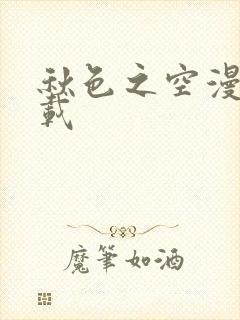 秋色之空漫
載
魔筆如酒